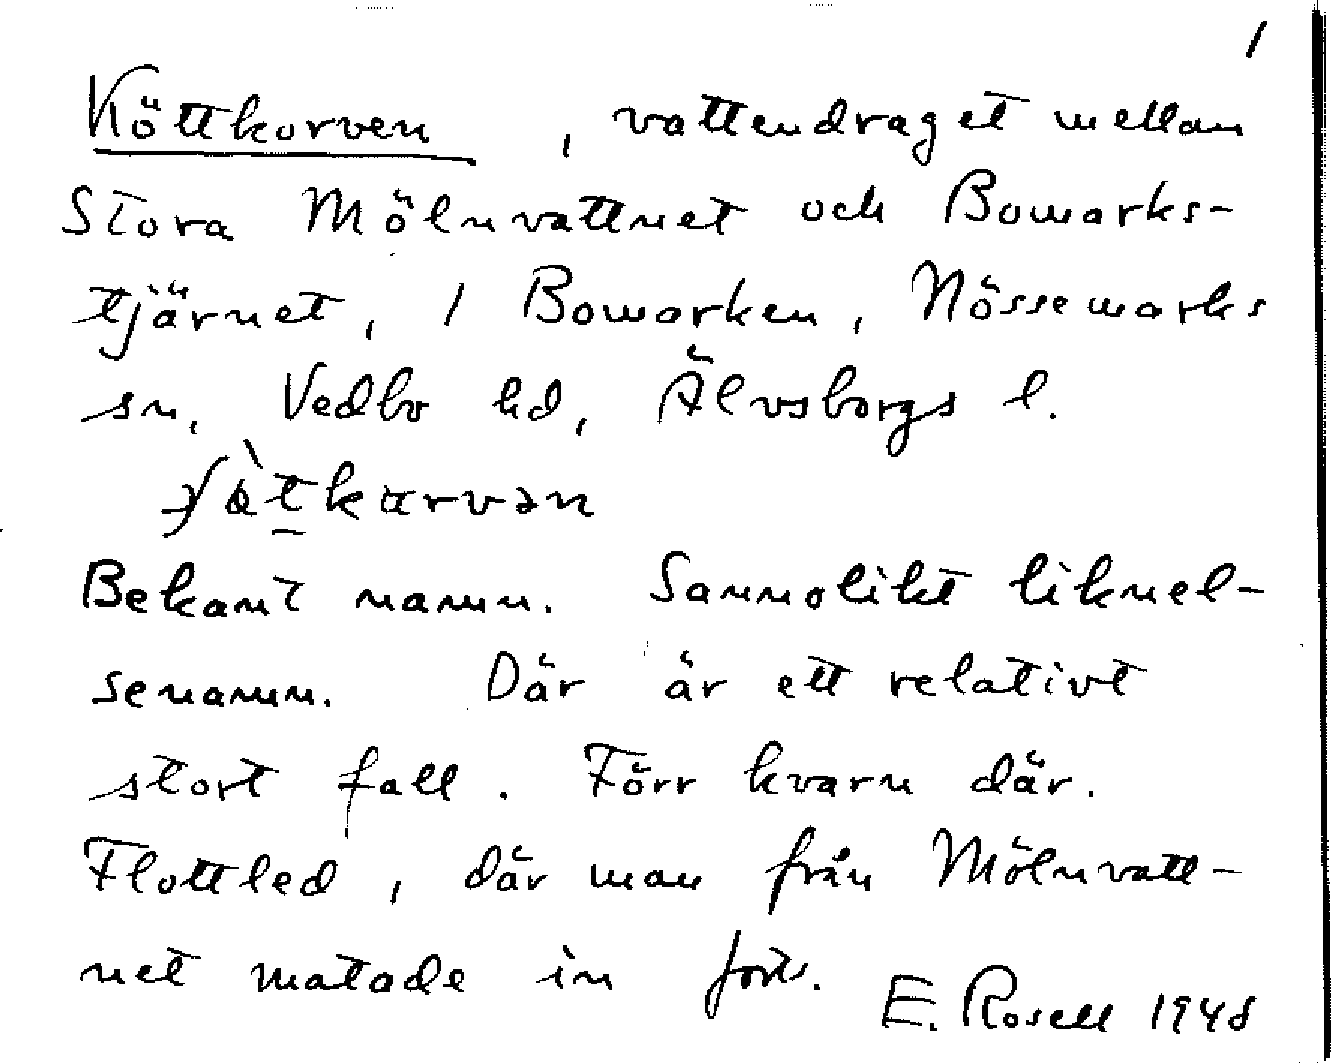 1
Köttkorven, vattendraget mellan
Stora Mölnvattnet och Bowarks-
tjärnet, 1 Bowarken, Nössemarks
sn, Vedbo hd, Älvsborgs l.
Bekant namn. Sannolikt liknel-
senamn. Där är ett relativt
stort fall. Förr kvarn där.
Flottled, där man från Mölnvatt-
net matade in forts.
E. Rosell 1948